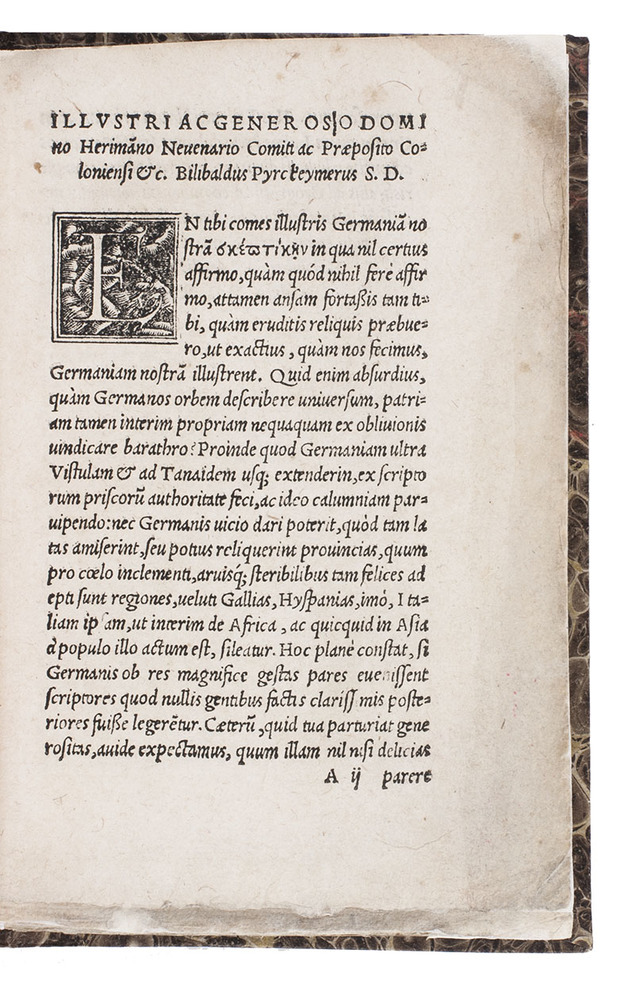 ILLVSTRI AC GENEROSIO DOMI
no Herimãno Neuenario Comiti ac Præposito Co-
loniensi &c. Bilibaldus Pyrckeymerus S. D.
EN tibi comes illustris Germaniã no
strã σκέϖτικὴν in qua nil certius
affirmo, quàm quód nihil ferè affir
mo, attamen ansam fortaßis tam ti-
bi, quàm eruditis reliquis præbue-
ro, ut exactius, quàm nos fecimus,
Germaniam nostrã illustrent. Quid enim absurdius,
quàm Germanos orbem describere uniuersum, patri-
am tamen interim propriam nequaquam ex obliuionis
uindicare barathro? Proinde quod Germaniam ultra
Vistulam & ad Tanaidem usq; extenderin, ex scripto
rum priscorũ authoritate feci, ac ideo calumniam par-
uipendo: nec Germanis uicio dari poterit, quòd tam la
tas amiserint, seu potius reliquerint prouincias, quum
pro cœlo inclementi, aruisq; steribilibus tam felices ad
epti sunt regiones, ueluti Gallias, Hyspanias, imó, I ta-
liam ip am, ut interim de Africa, ac quicquid in Asia
à populo illo actum est, sileatur. Hoc planè constat, si
Germanis ob res magnifice gestas pares euenissent
scriptores quod nullis gentibus factis clariss mis poste-
riores fuiße legerẽtur. Cæterũ, quid tua parturiat gene
rositas, auide expectamus, quum illam nil nisi delicias
A ij parere